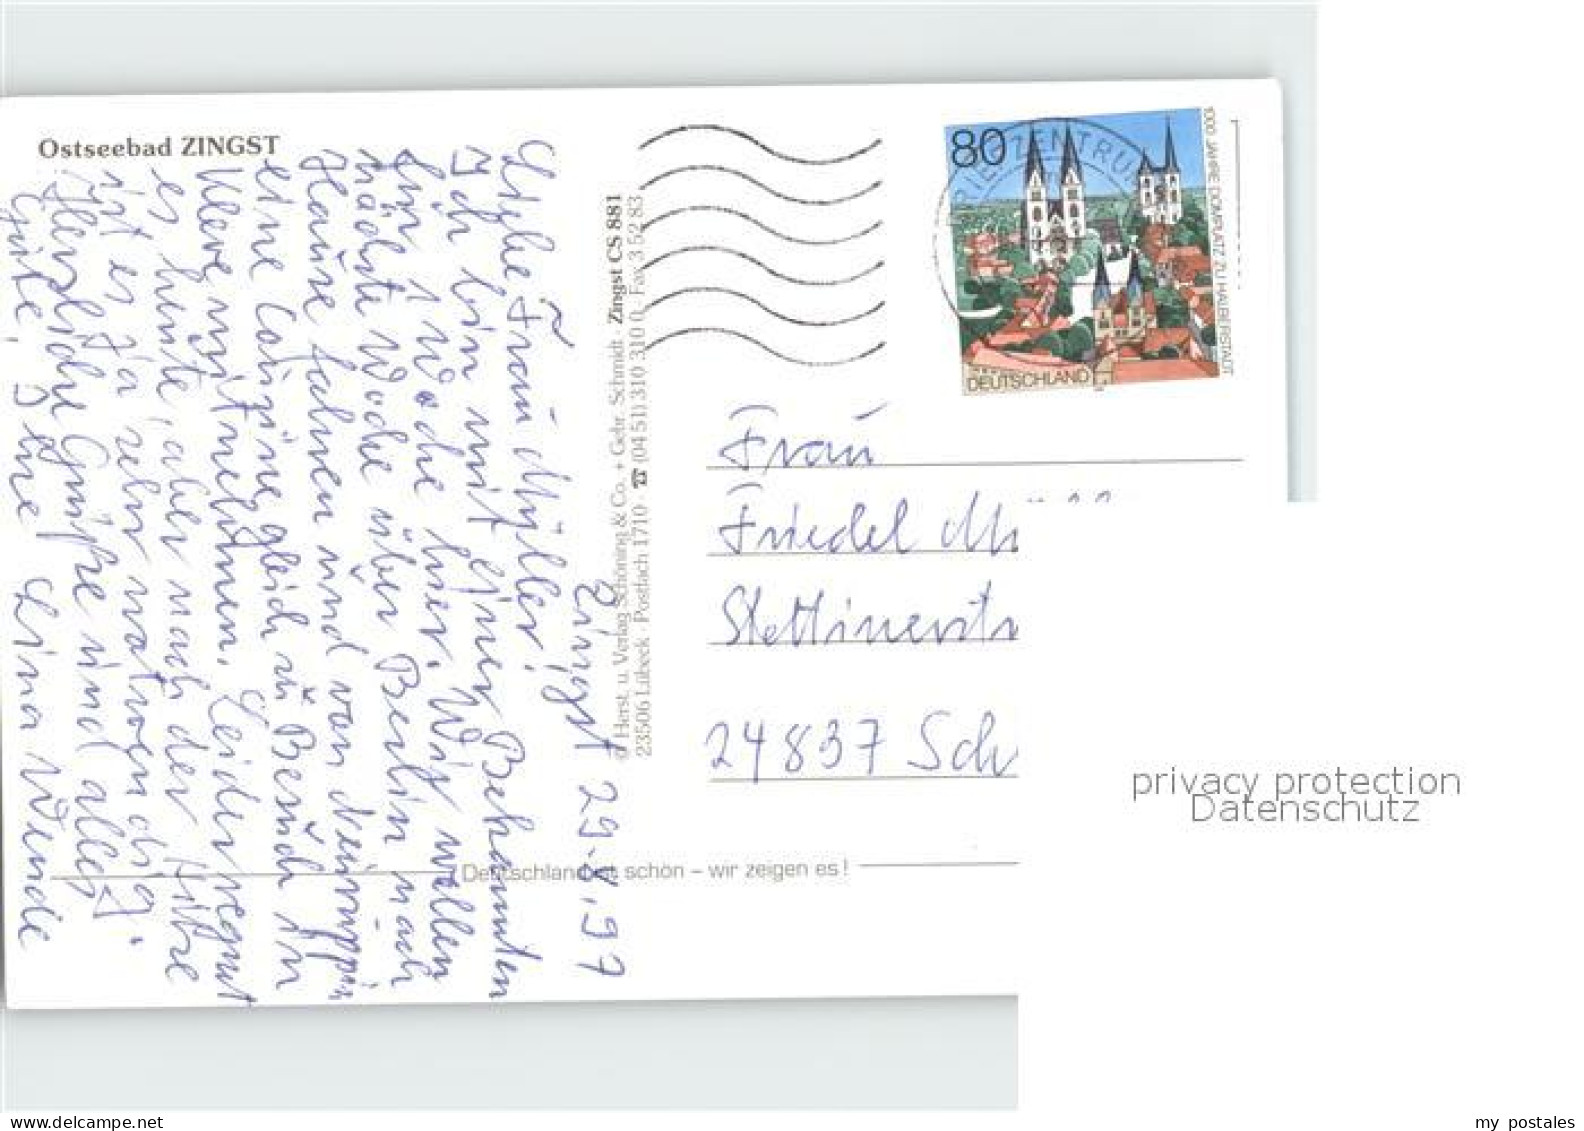 Ostseebad ZINGST
Zingst 29.8.97
Liebe Frau Müller!
Ich bin mit einer Bekannten
für 1 Woche hier. Wir wollen
nächste Woche über Berlin nach
Hause fahren und von Neuruppin
eine Cousine gleich zu Besuch in
Kleve mitnehmen. Leider regnet
es heute, aber nach der Hitze
ist es ja sehr notwendig.
Herzliche Grüße und alles
Gute, Ihre Lina Wende
© Herst. u. Verlag Schöning & Co. + Gebr. Schmidt · Zingst CS 881
23506 Lübeck · Postfach 1710 · ☎ (04 51) 310 310 0 · Fax 3 52 83
80
1000 JAHRE DOMPLATZ ZU HALBERSTADT
DEUTSCHLAND
BRIEFZENTRUM
Frau
Friedel
Stettinerstr
24837 Sch
Deutschland ist schön – wir zeigen es!
privacy protection
Datenschutz
my postales